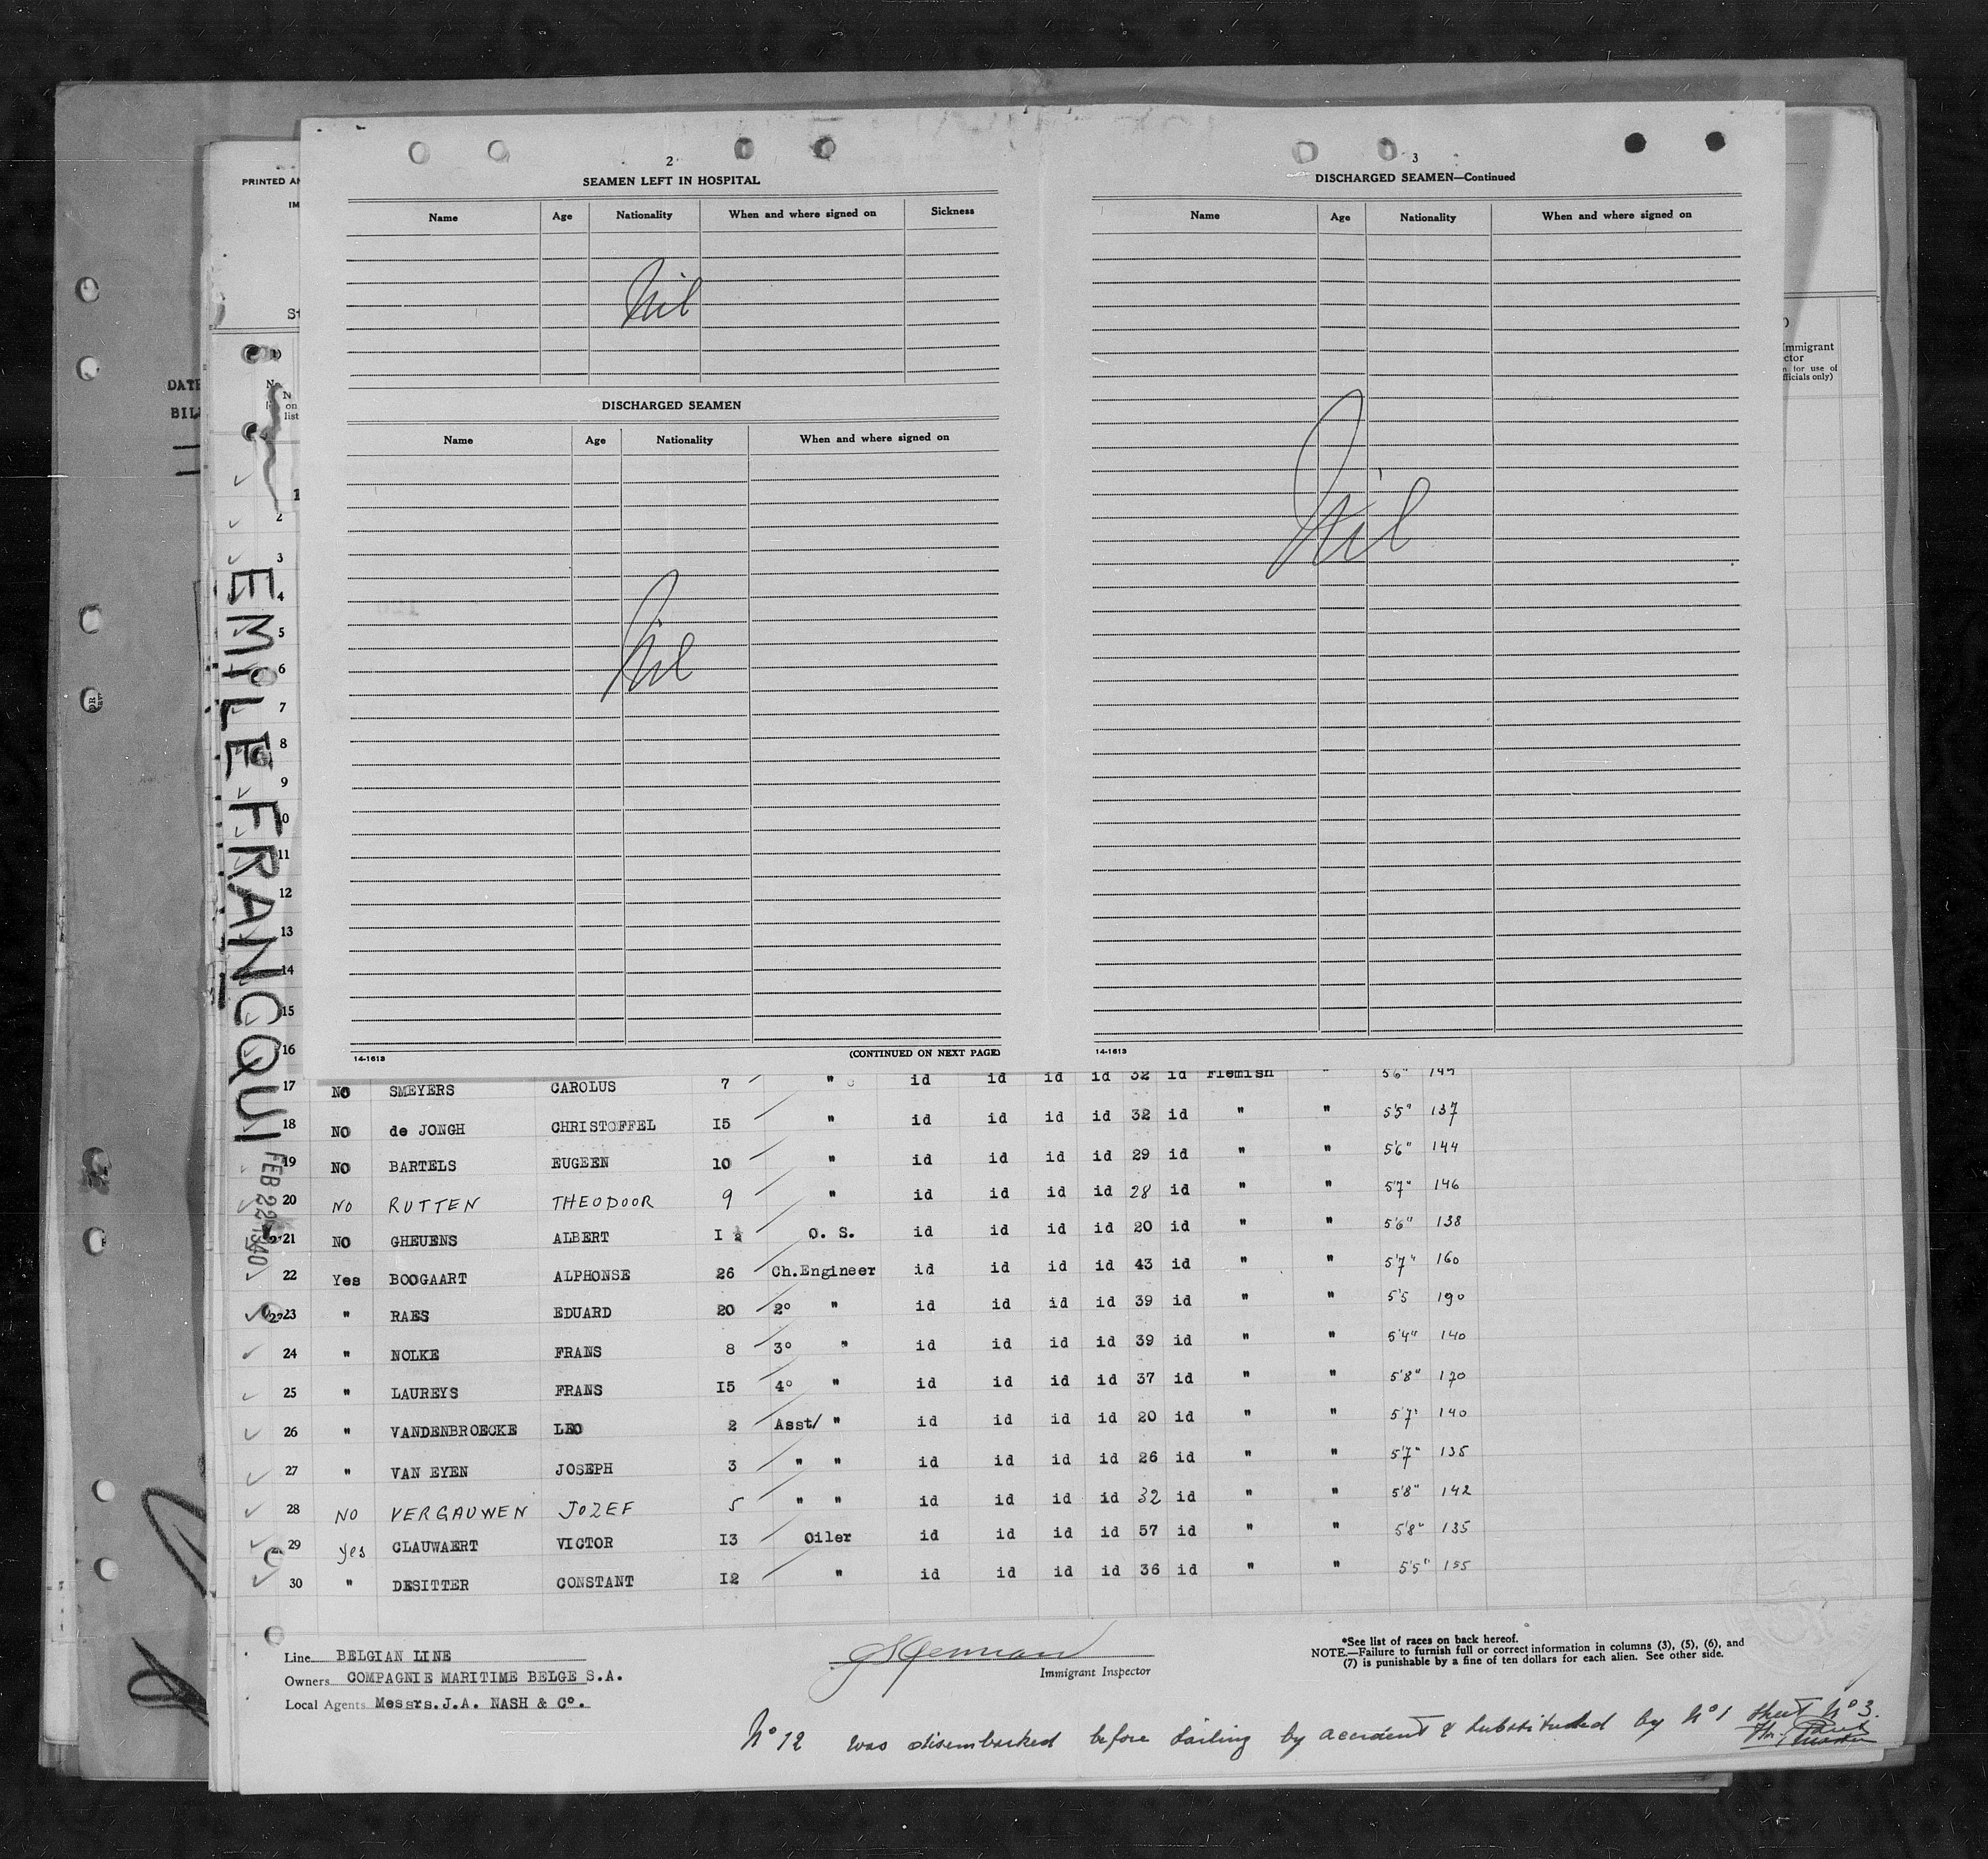 2
SEAMEN LEFT IN HOSPITAL
Name Age Nationality When and where signed on Sickness
Nil
DISCHARGED SEAMEN
Name Age Nationality When and where signed on
Nil
14-1613 (CONTINUED ON NEXT PAGE)
3
DISCHARGED SEAMEN—Continued
Name Age Nationality When and where signed on
Nil
14-1613
PRINTED
DATE
on
list
Immigrant
for use of
officials only)
EMILE FRANCQUI
FEB 22 1940
2
3
4
5
6
7
8
9
10
11
12
13
14
15
16
17 NO SMEYERS CAROLUS 7 " id id id id 32 id Flemish " 5'6"
18 NO de JONGH CHRISTOFFEL 15 " id id id id 32 id " " 5'5" 137
19 NO BARTELS EUGEEN 10 " id id id id 29 id " " 5'6" 144
20 NO RUTTEN THEODOOR 9 " id id id id 28 id " " 5'7" 146
21 NO GHEUENS ALBERT O. S. id id id id 20 id " " 5'6" 138
22 Yes BOOGAART ALPHONSE 26 Ch.Engineer id id id id 43 id " " 5'7" 160
23 " RAES EDUARD 20 2° " id id id id 39 id " " 5'5 190
24 " NOLKE FRANS 8 3° " id id id id 39 id " " 5'4" 140
25 " LAUREYS FRANS 15 4° " id id id id 37 id " " 5'8" 170
26 " VANDENBROECKE LEO 2 Asst/ " id id id id 20 id " " 5'7" 140
27 " VAN EYEN JOSEPH 3 " " id id id id 26 id " " 5'7" 135
28 NO VERGAUWEN JOZEF 5 " " id id id id 32 id " " 5'8" 142
29 yes CLAUWAERT VICTOR 13 Oiler id id id id 57 id " " 5'8" 135
30 " DESITTER CONSTANT 12 " id id id id 36 id " " 5'5" 155
Line BELGIAN LINE
Owners COMPAGNIE MARITIME BELGE S.A.
Local Agents Messrs.J.A. NASH & C°.
Immigrant Inspector
*See list of races on back hereof.
NOTE.—Failure to furnish full or correct information in columns (3), (5), (6), and
(7) is punishable by a fine of ten dollars for each alien. See other side.
N° 12 was disembarked before sailing by accident & substituted by N° 1 sheet N° 3.